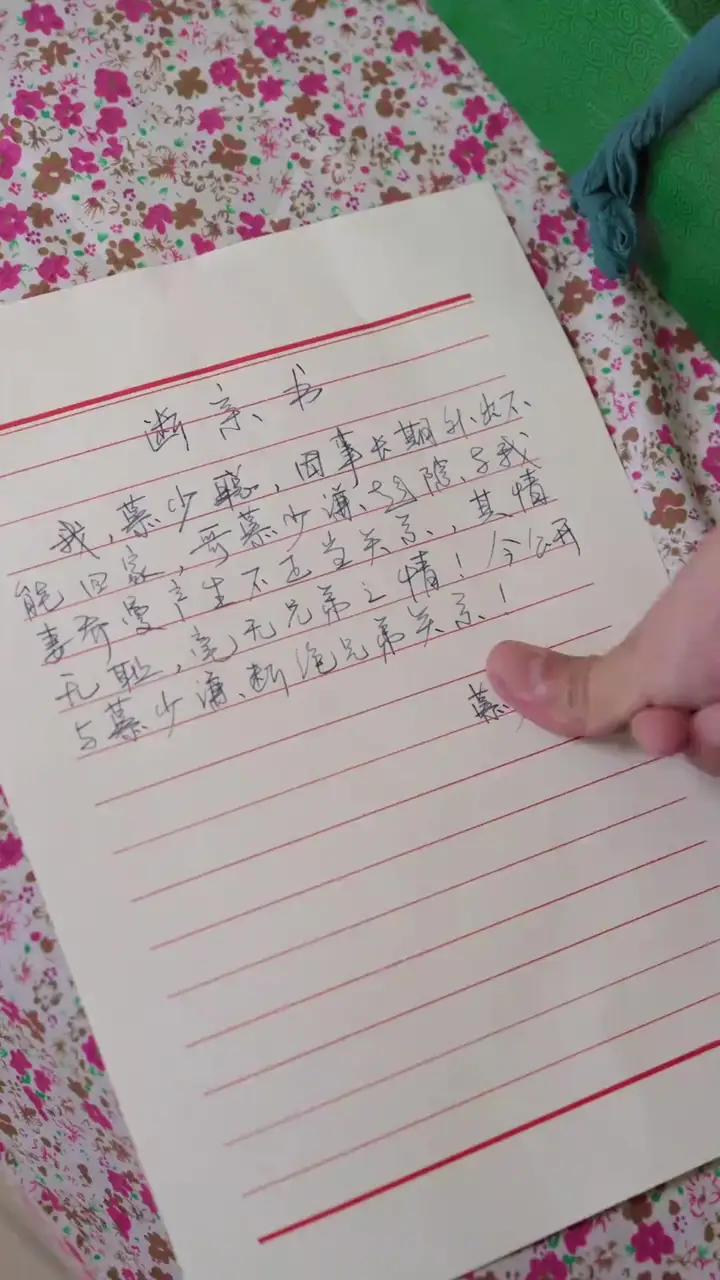 断亲书
我,慕少聪,因事长期外出不
能回家,哥慕少谦趋险与我
妻乔雯产生不正当关系,其情
无耻,毫无兄弟之情!今公开
与慕少谦断绝兄弟关系!
慕